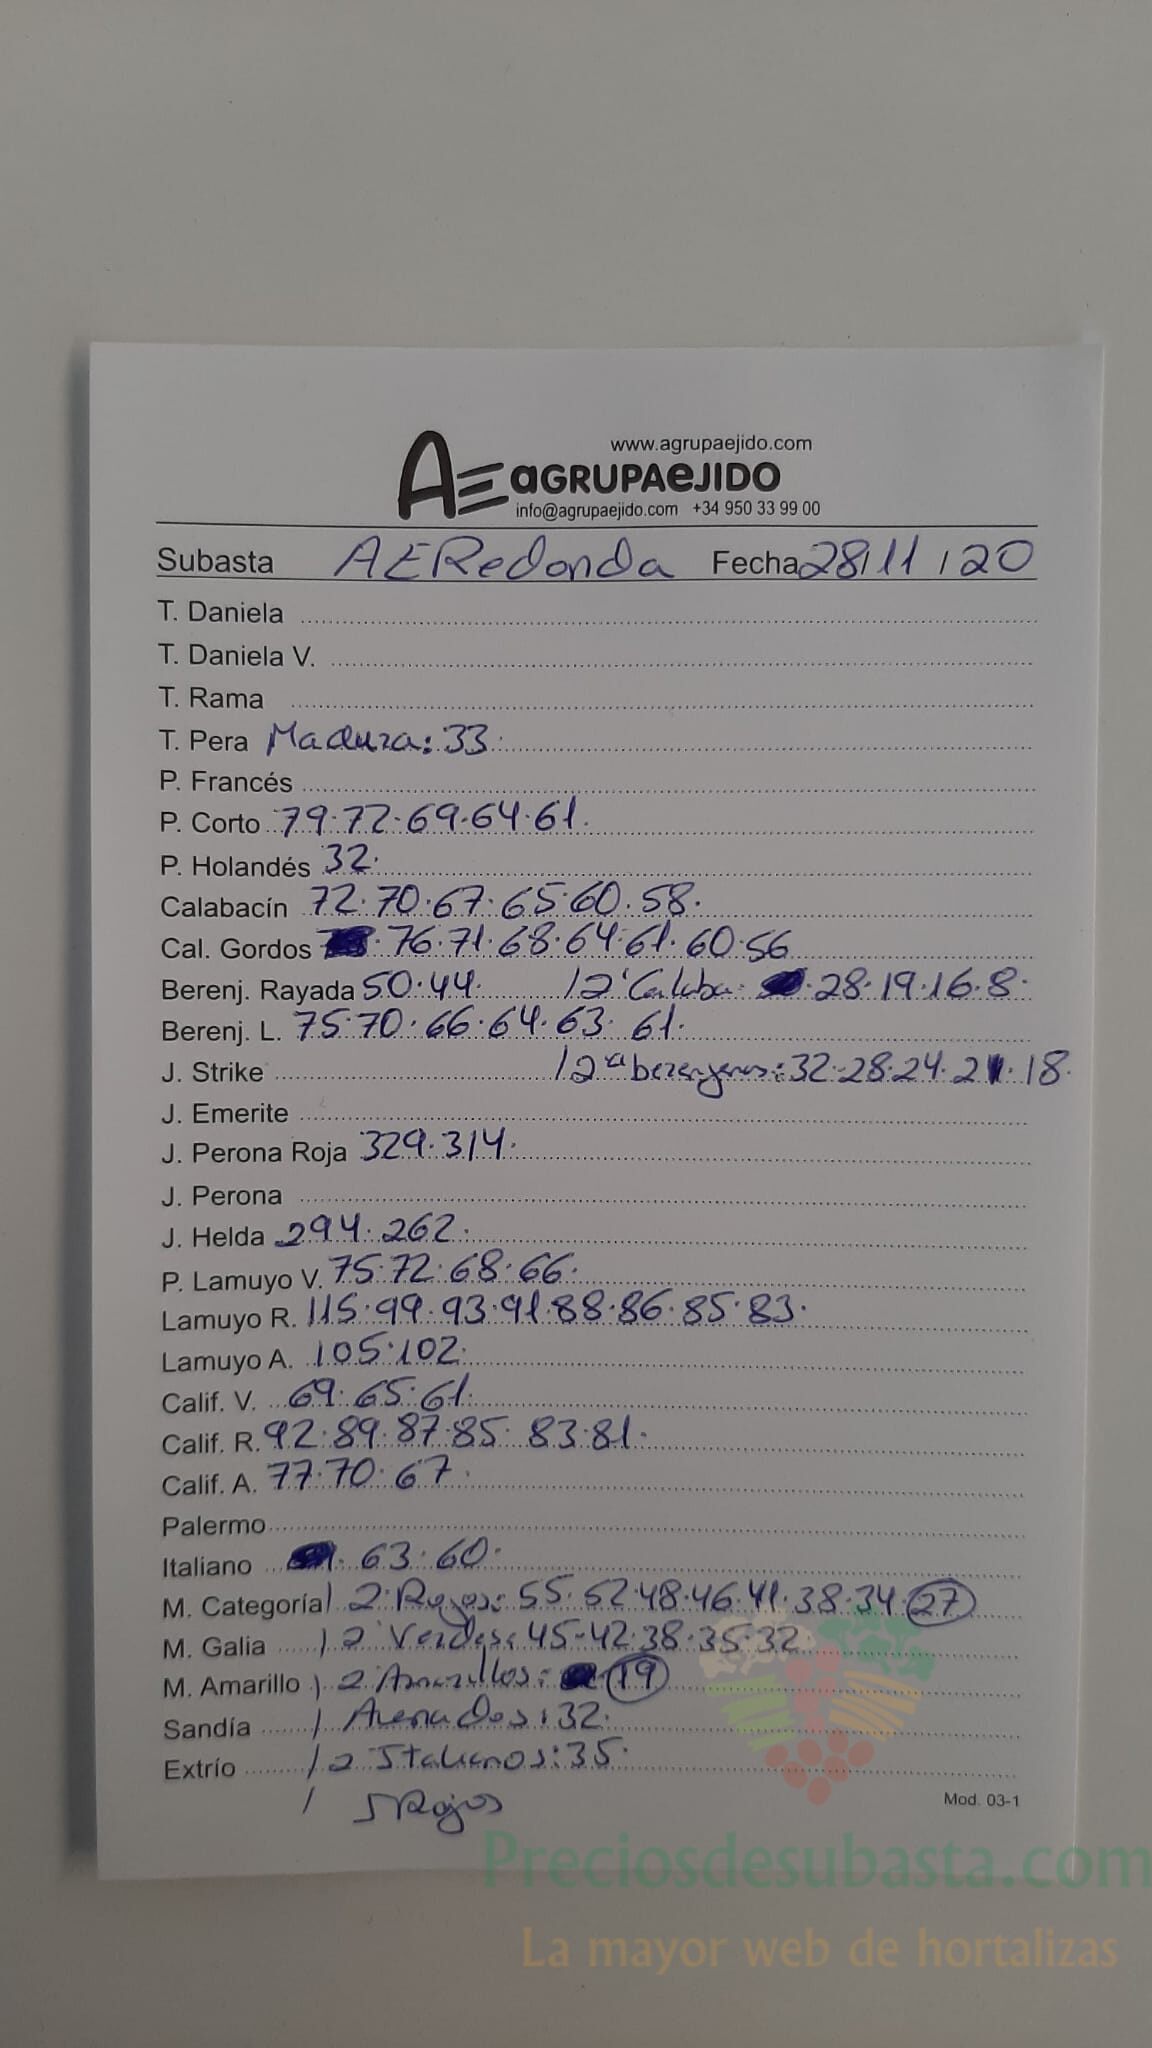 www.agrupaejido.com
AE aGRUPAeJIDO
info@agrupaejido.com +34 950 33 99 00
Subasta AERedonda Fecha 28/11/20
T. Daniela
T. Daniela V.
T. Rama
T. Pera Madura: 33.
P. Francés
P. Corto 79.72.69.64.61.
P. Holandés 32.
Calabacín 72.70.67.65.60.58.
Cal. Gordos 76.71.68.64.61.60.56
Berenj. Rayada 50.44. / 2ª Calaba: 28.19.16.8.
Berenj. L. 75.70.66.64.63.61.
J. Strike / 2ª berenjenas: 32.28.24.21.18.
J. Emerite
J. Perona Roja 329.314.
J. Perona
J. Helda 294.262.
P. Lamuyo V. 75.72.68.66.
Lamuyo R. 115.99.93.91.88.86.85.83.
Lamuyo A. 105.102.
Calif. V. 69.65.61.
Calif. R. 92.89.87.85.83.81.
Calif. A. 77.70.67.
Palermo
Italiano 63.60.
M. Categoría / 2ª Rojos: 55.52.48.46.41.38.34.27
M. Galia / 2ª Verdes: 45-42.38.35.32
M. Amarillo / 2 Amarillos: 19
Sandía / Asenados: 32.
Extrío / 2 Italianos: 35.
/ Rojos
Mod. 03-1
Preciosdesubasta.com
La mayor web de hortalizas